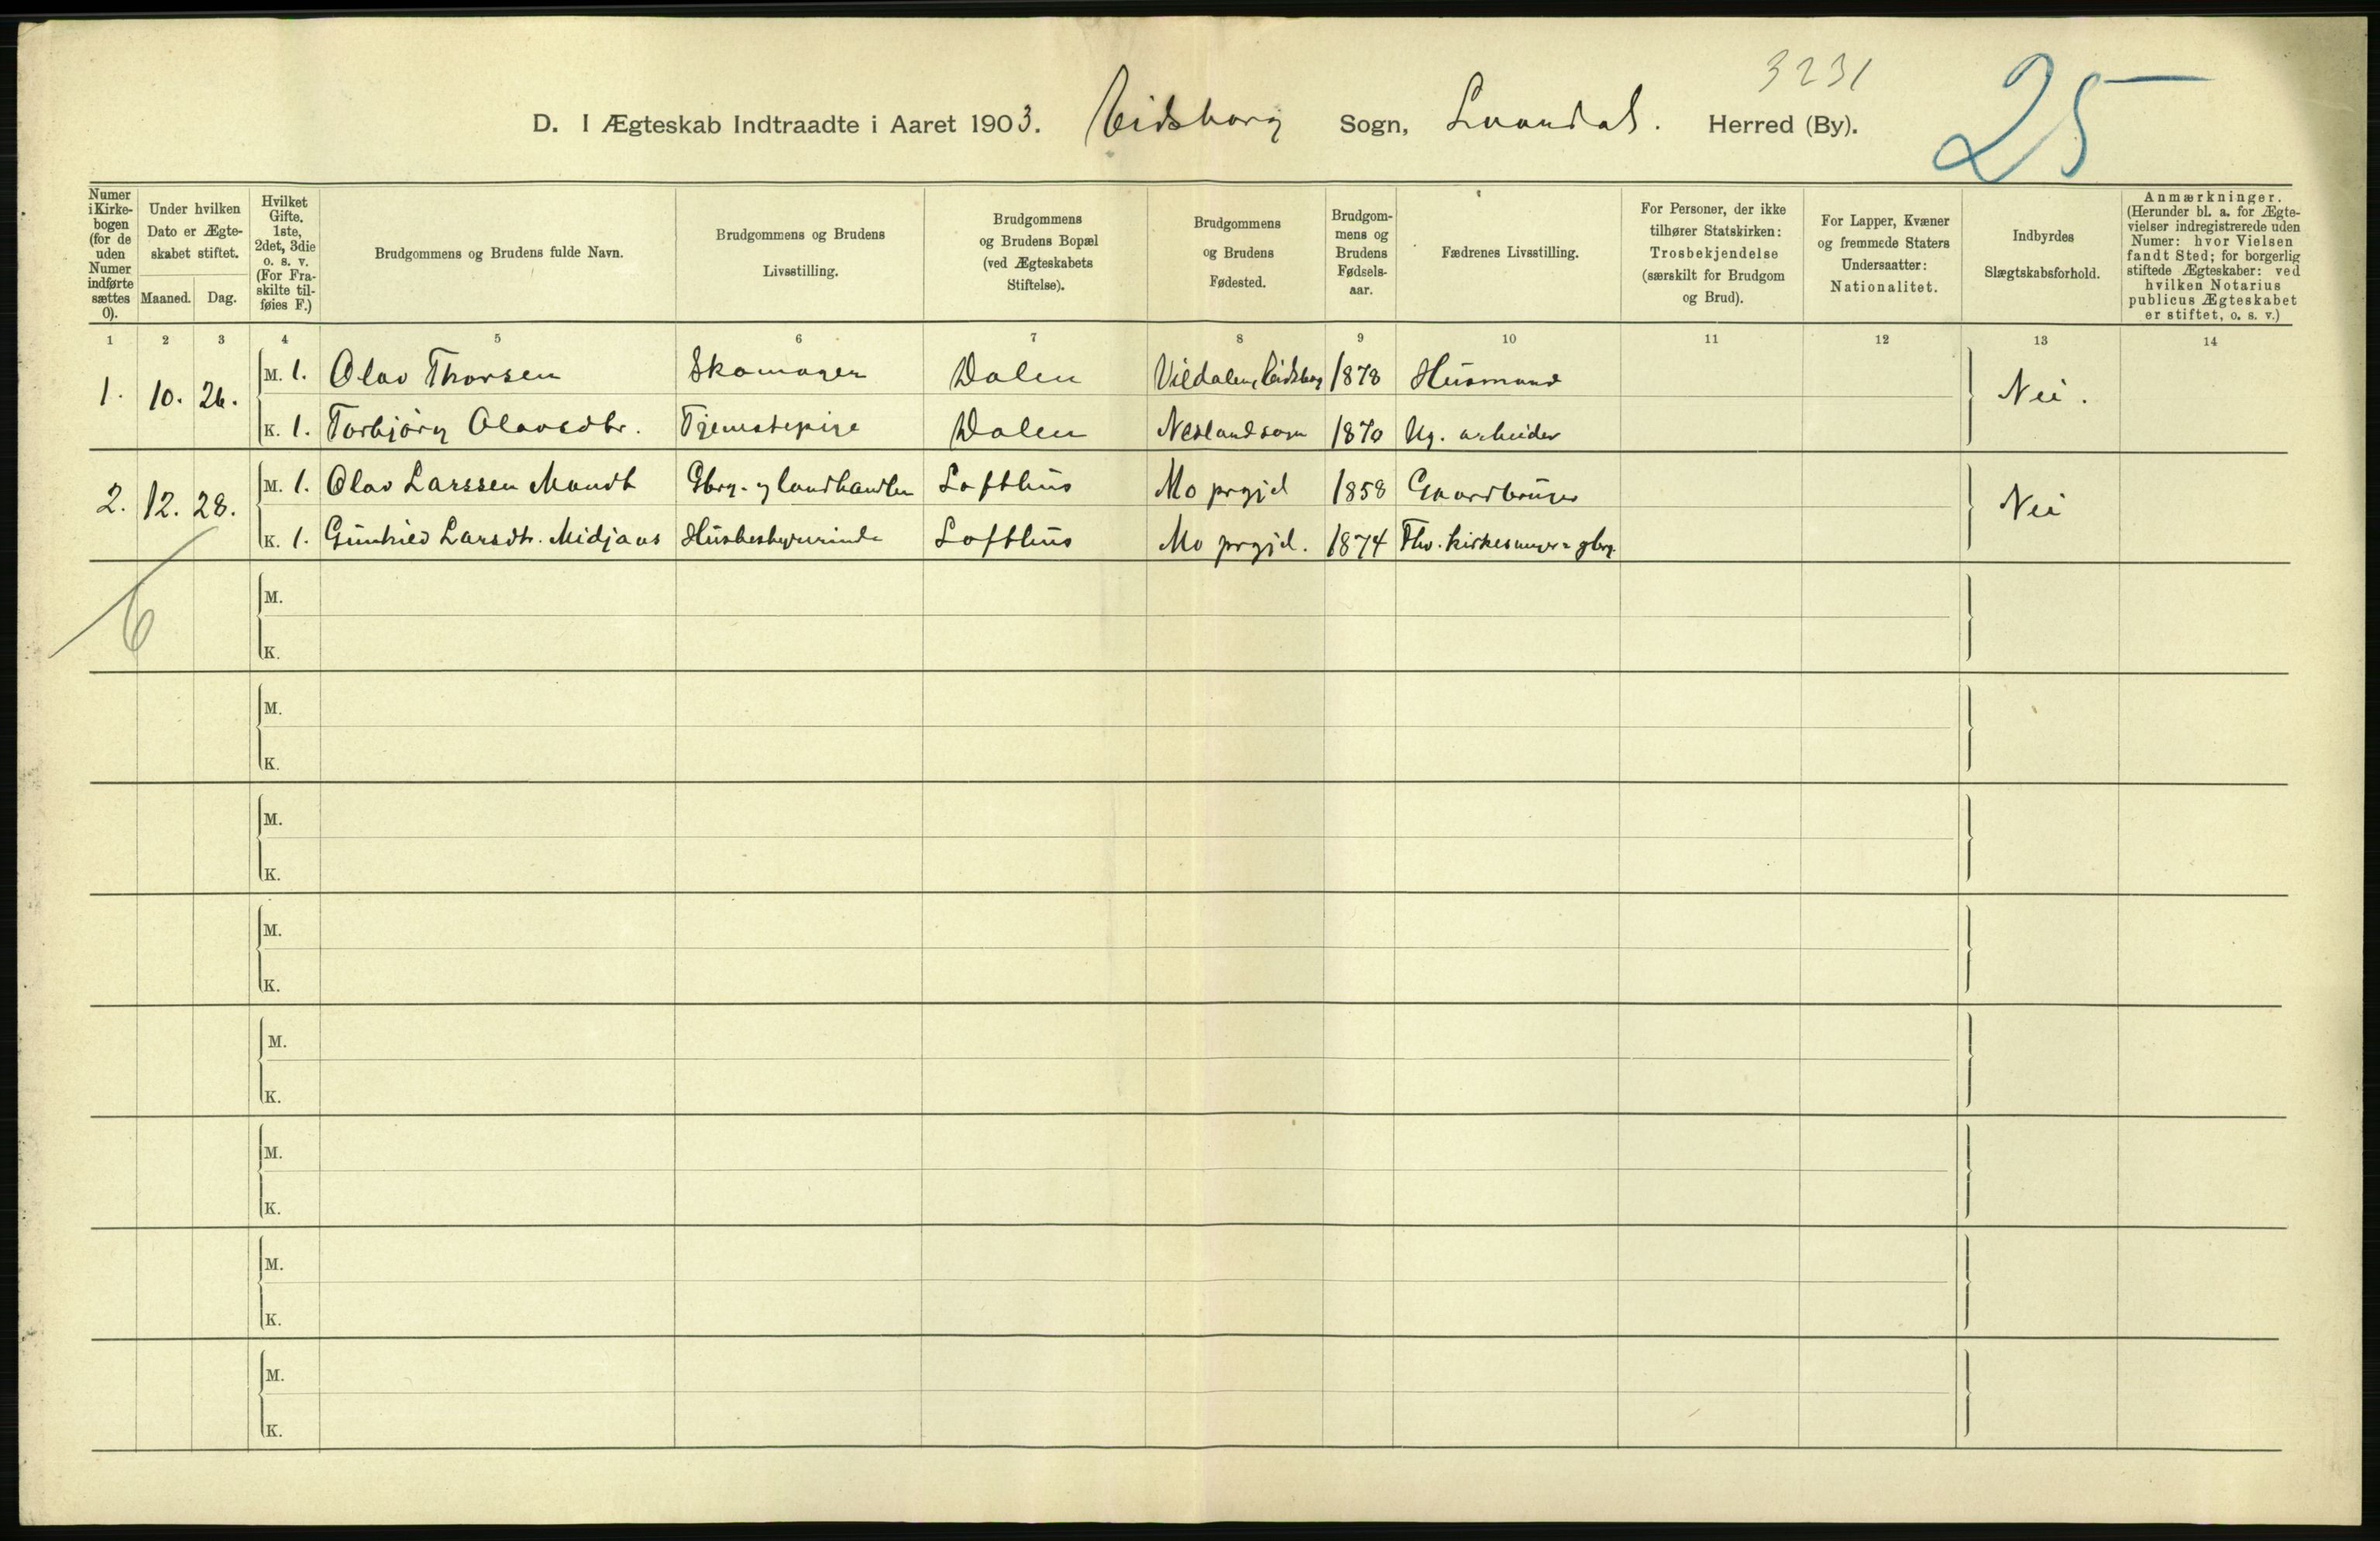 3231
25
D. I Ægteskab Indtraadte i Aaret 1903. Eidsborg Sogn, Laardal. Herred (By).
Numer i Kirkebogen (for de uden Numer indførte sættes 0).
Under hvilken Dato er Ægteskabet stiftet.
Maaned. Dag.
Hvilket Gifte, 1ste, 2det, 3die o. s. v. (For Fraskilte tilføies F.)
Brudgommens og Brudens fulde Navn.
Brudgommens og Brudens Livsstilling.
Brudgommens og Brudens Bopæl (ved Ægteskabets Stiftelse).
Brudgommens og Brudens Fødested.
Brudgommens og Brudens Fødselsaar.
Fædrenes Livsstilling.
For Personer, der ikke tilhører Statskirken: Trosbekjendelse (særskilt for Brudgom og Brud).
For Lapper, Kvæner og fremmede Staters Undersaatter: Nationalitet.
Indbyrdes Slægtskabsforhold.
Anmærkninger. (Herunder bl. a. for Ægtevielser indregistrerede uden Numer: hvor Vielsen fandt Sted; for borgerlig stiftede Ægteskaber: ved hvilken Notarius publicus Ægteskabet er stiftet, o. s. v.)
1 2 3 4 5 6 7 8 9 10 11 12 13 14
1. 10. 26. M. 1. Olav Thorsen Skomager Dalen Vildalen, Eidsborg 1878 Husmand Nei.
K. 1. Torbjörg Olavsdtr. Tjenestepige Dalen Neslandsogn 1870 Ug. arbeider
2. 12. 28. M. 1. Olav Larssen Mandt Gbrg. og landhandler Lofthus Mo prgjd 1858 Gaardbruger Nei
K. 1. Gunhild Larsdtr. Midjaas Husbestyrerinde Lofthus Mo prgjd. 1874 Fhv. kirkesanger = gbrg.
6
M.
K.
M.
K.
M.
K.
M.
K.
M.
K.
M.
K.
M.
K.
M.
K.